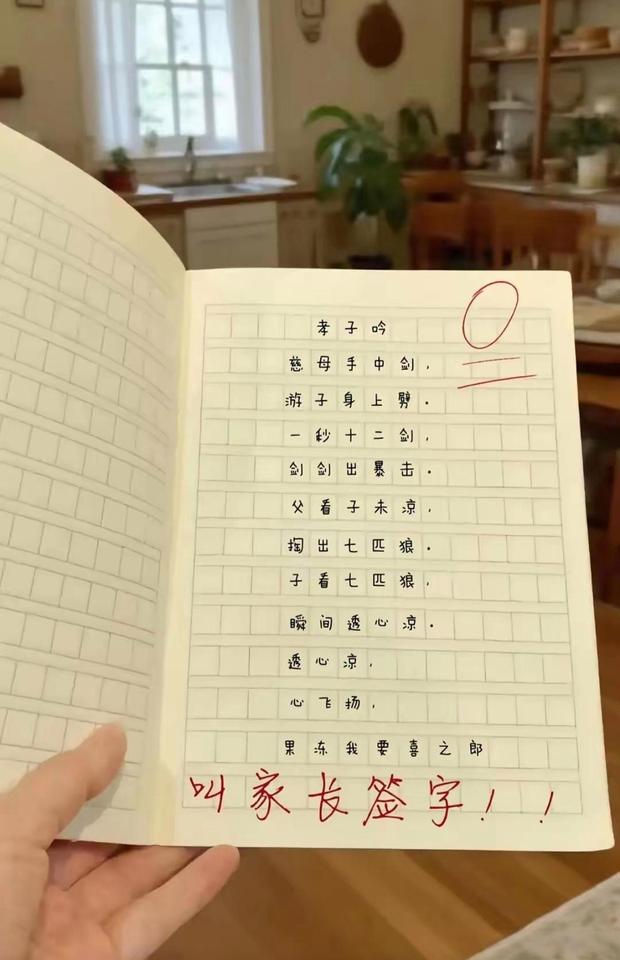 孝子吟
慈母手中剑，
游子身上劈。
一秒十二剑，
剑剑出暴击。
父看子未凉，
掏出七匹狼。
子看七匹狼，
瞬间透心凉。
透心凉，
心飞扬，
果冻我要喜之郎
叫家长签字！！